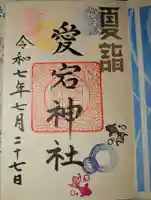 夏詣
愛宕神社
令和七年七月二十七日